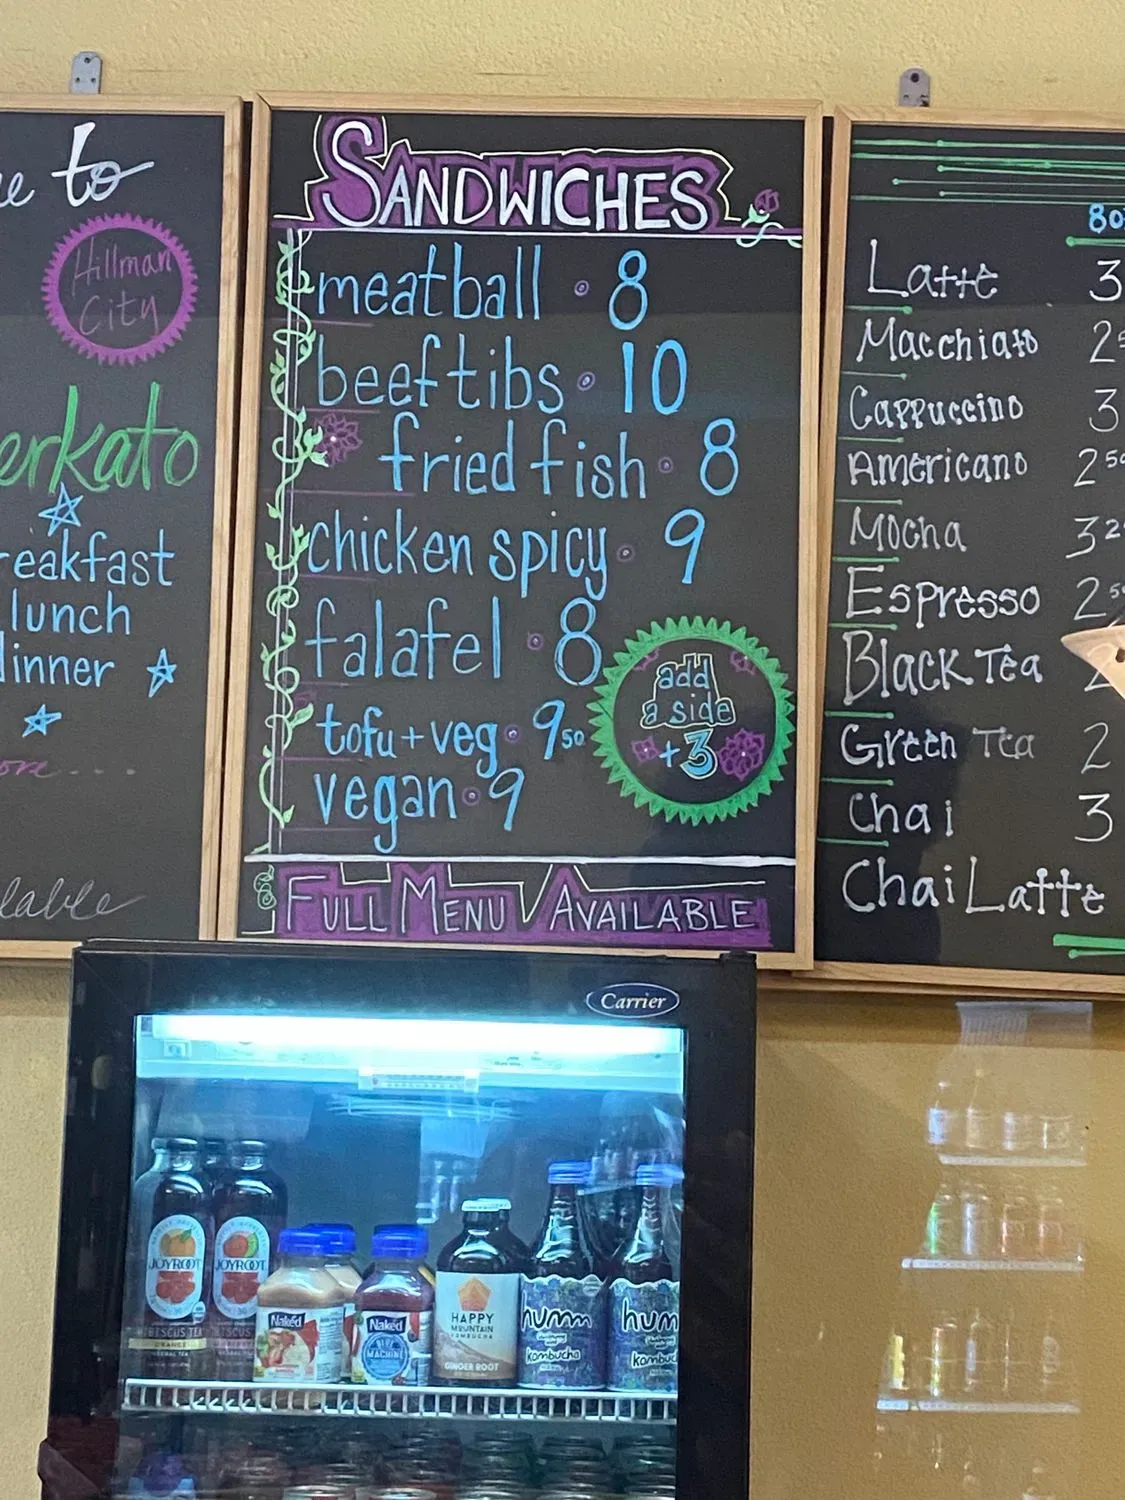 to
Hillman
City
reakfast
lunch
dinner
SANDWICHES
meatball • 8
beef tibs • 10
fried fish • 8
chicken spicy • 9
falafel • 8
tofu + veg • 9 50
vegan • 9
add
a side
+3
FULL MENU AVAILABLE
80
Latte 3
Macchiato 2
Cappuccino 3
Americano 2 50
Mocha 3 2
Espresso 2 5
Black Tea 2
Green Tea 2
Chai 3
Chai Latte
Carrier
JOYROOT
JOYROOT
HIBISCUS TEA
ORANGE
Naked
Naked
BLUE
MACHINE
HAPPY
MOUNTAIN
KOMBUCHA
GINGER ROOT
humm
kombucha
hum
kombuc